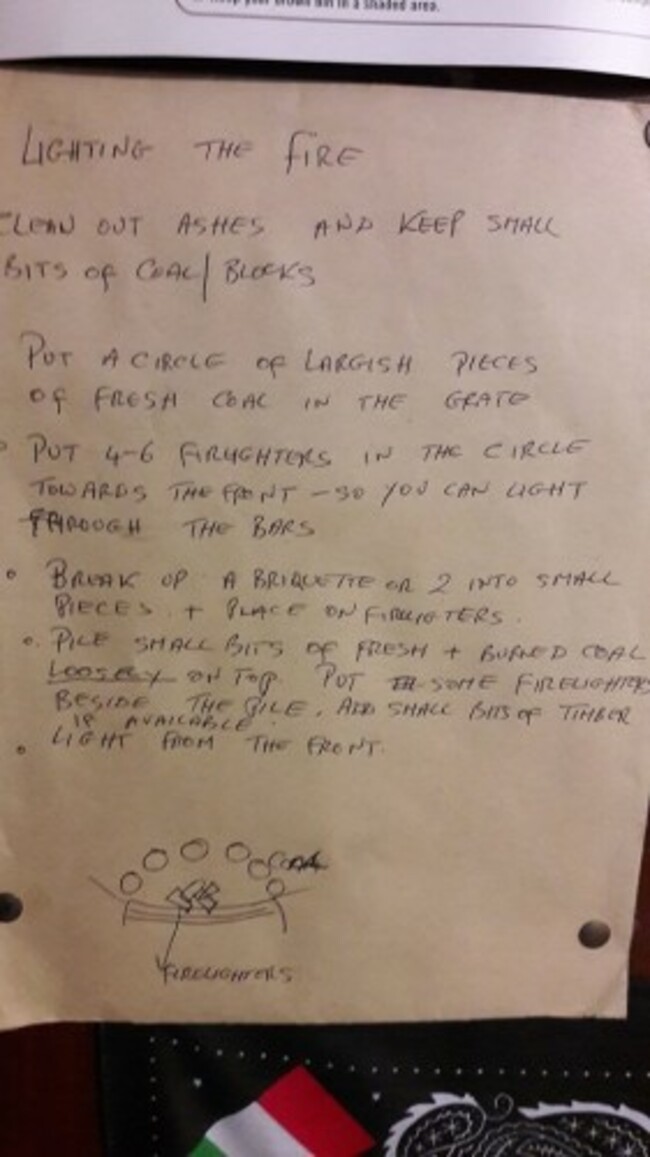 keep your brown bin in a shaded area.
LIGHTING THE FIRE
CLEAN OUT ASHES AND KEEP SMALL
BITS OF COAL/BLOCKS
PUT A CIRCLE OF LARGISH PIECES
OF FRESH COAL IN THE GRATE
PUT 4-6 FIRLIGHTERS IN THE CIRCLE
TOWARDS THE FRONT - SO YOU CAN LIGHT
THROUGH THE BARS
BREAK UP A BRIQUETTE OR 2 INTO SMALL
PIECES + PLACE ON FIRELIGTERS.
PILE SMALL BITS OF FRESH + BURNED COAL
LOOSELY ON TOP. PUT SOME FIRELIGHTERS
BESIDE THE PILE. ADD SMALL BITS OF TIMBER
IF AVAILABLE.
LIGHT FROM THE FRONT.
COAL
FIRELIGHTERS